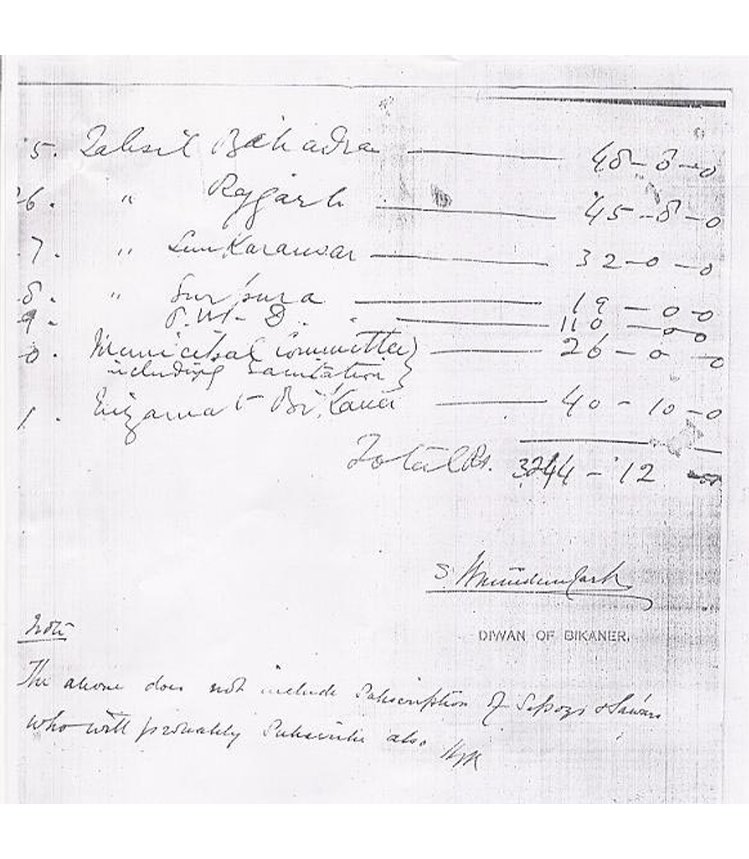 5. Tahsil Bahadra — 48-8-0
26. " Rajgarh — 45-8-0
7. " Lunkaransar — 32-0-0
8. " Surpura — 19-0-0
9. P.W.D. — 110-0-0
0. Municipal Committee — 26-0-0
including Sanitation
1. Nizamat Bikaner — 40-10-0
Total Rs. 3244-12
S.
DIWAN OF BIKANER.
Note
The above does not include Subscription of Sepoys & Sawars
who will probably Subscribe also